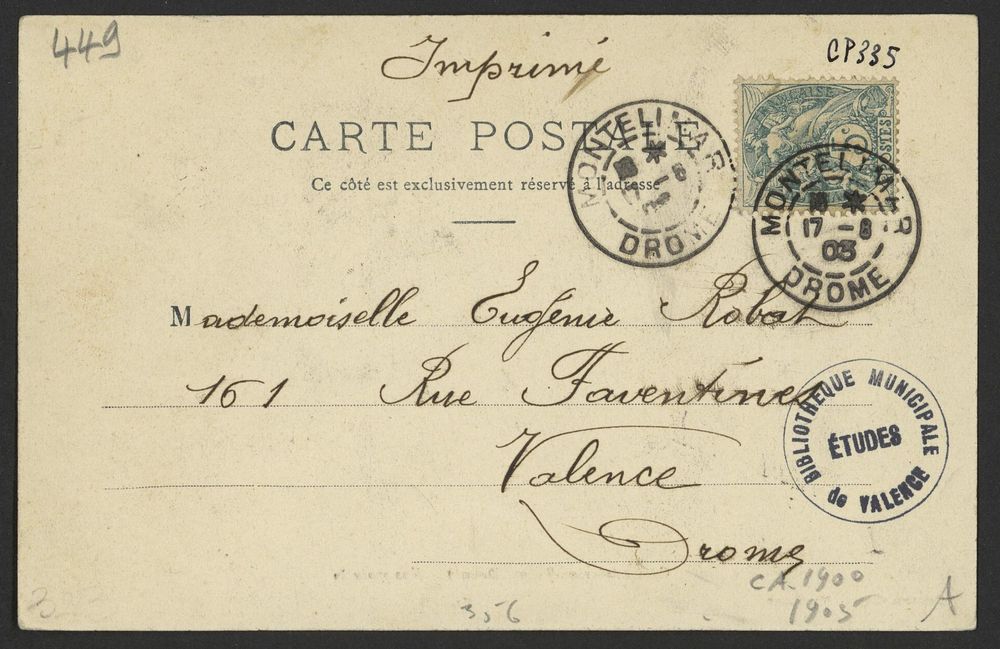 449
Imprimé
CP335
CARTE POSTALE
Ce côté est exclusivement réservé à l'adresse
MONTELIMAR
DROME
MONTELIMAR
17 - 8
03
DROME
POSTES
Mademoiselle Eugénie Robat
161 Rue Faventines
Valence
Drome
BIBLIOTHEQUE MUNICIPALE
ÉTUDES
de VALENCE
CA.1900
1905
356
3
A